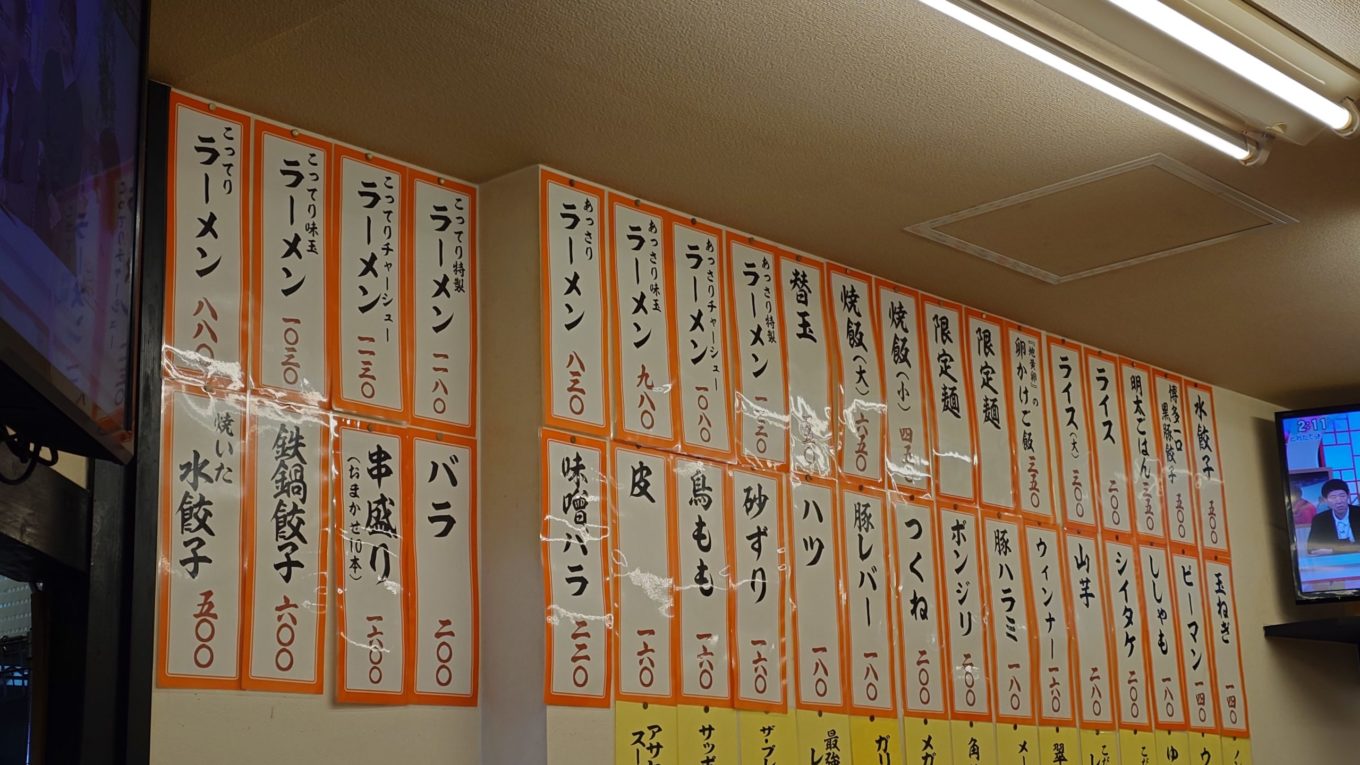 こってり
ラーメン 八八〇
こってり味玉
ラーメン 一〇三〇
こってりチャーシュー
ラーメン 一一三〇
こってり特製
ラーメン 一二八〇
焼いた
水餃子 五〇〇
鉄鍋餃子 六〇〇
串盛り
(おまかせ10本)
一六〇〇
バラ 二〇〇
あっさり
ラーメン 八三〇
あっさり味玉
ラーメン 九八〇
あっさりチャーシュー
ラーメン 一〇八〇
あっさり特製
ラーメン 一二三〇
替玉
焼飯(大) 六五〇
焼飯(小) 四五〇
限定麺
限定麺
の
卵かけご飯 三五〇
ライス(大) 三〇〇
ライス 二〇〇
明太ごはん 三五〇
博多一口
黒豚餃子 五〇〇
水餃子 五〇〇
味噌バラ 二二〇
皮 一六〇
鳥もも 一六〇
砂ずり 一六〇
ハツ 一八〇
豚レバー 一八〇
つくね 二〇〇
ボンジリ 二〇〇
豚ハラミ 一八〇
ウィンナー 一六〇
山芋 二八〇
シイタケ 二〇〇
ししゃも 一八〇
ピーマン 一四〇
玉ねぎ 一四〇
アサ
スー
サッポ
ザ・プレ
最強
レ
ガリ
メガ
角
メー
翠
ゆ
ウ
2:11